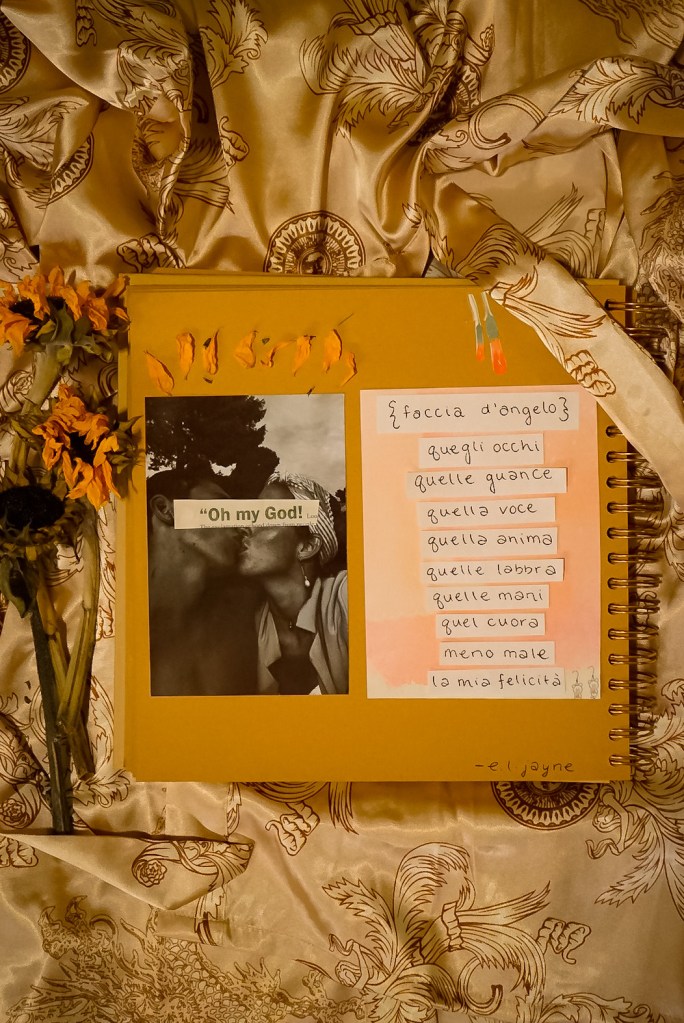 “Oh my God!
{faccia d'angelo}
quegli occhi
quelle guance
quella voce
quella anima
quelle labbra
quelle mani
quel cuora
meno male
la mia felicità
-e.l jayne